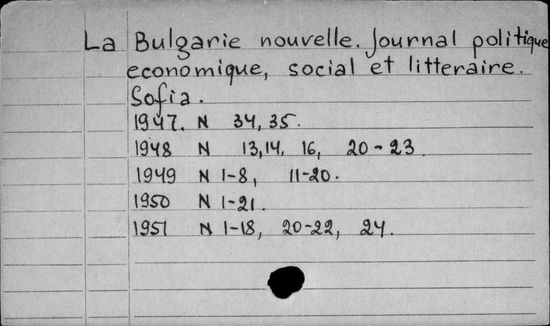 La Bulgarie nouvelle. Journal politique
economique, social et litteraire.
Sofia.
1947. N 34, 35.
1948 N 13,14, 16, 20-23.
1949 N 1-8, 11-20.
1950 N 1-21.
1951 N 1-18, 20-22, 24.